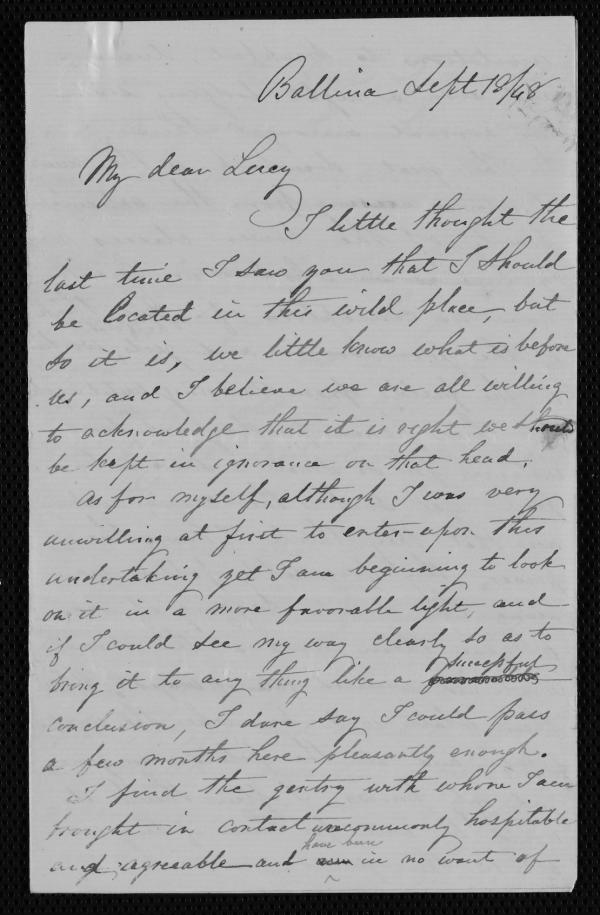 Ballina Sept 18/48
My dear Lucy
I little thought the
last time I saw you that I should
be located in this wild place, but
so it is, we little know what is before
us, and I believe we are all willing
to acknowledge that it is right we should
be kept in ignorance on that head.
As for myself, although I was very
unwilling at first to enter upon this
undertaking yet I am beginning to look
on it in a more favorable light, and
if I could see my way clearly so as to
bring it to any thing like a successful
conclusion, I dare say I could pass
a few months here pleasantly enough.
I find the gentry with whom I am
brought in contact uncommonly hospitable
and agreeable and have been in no want of